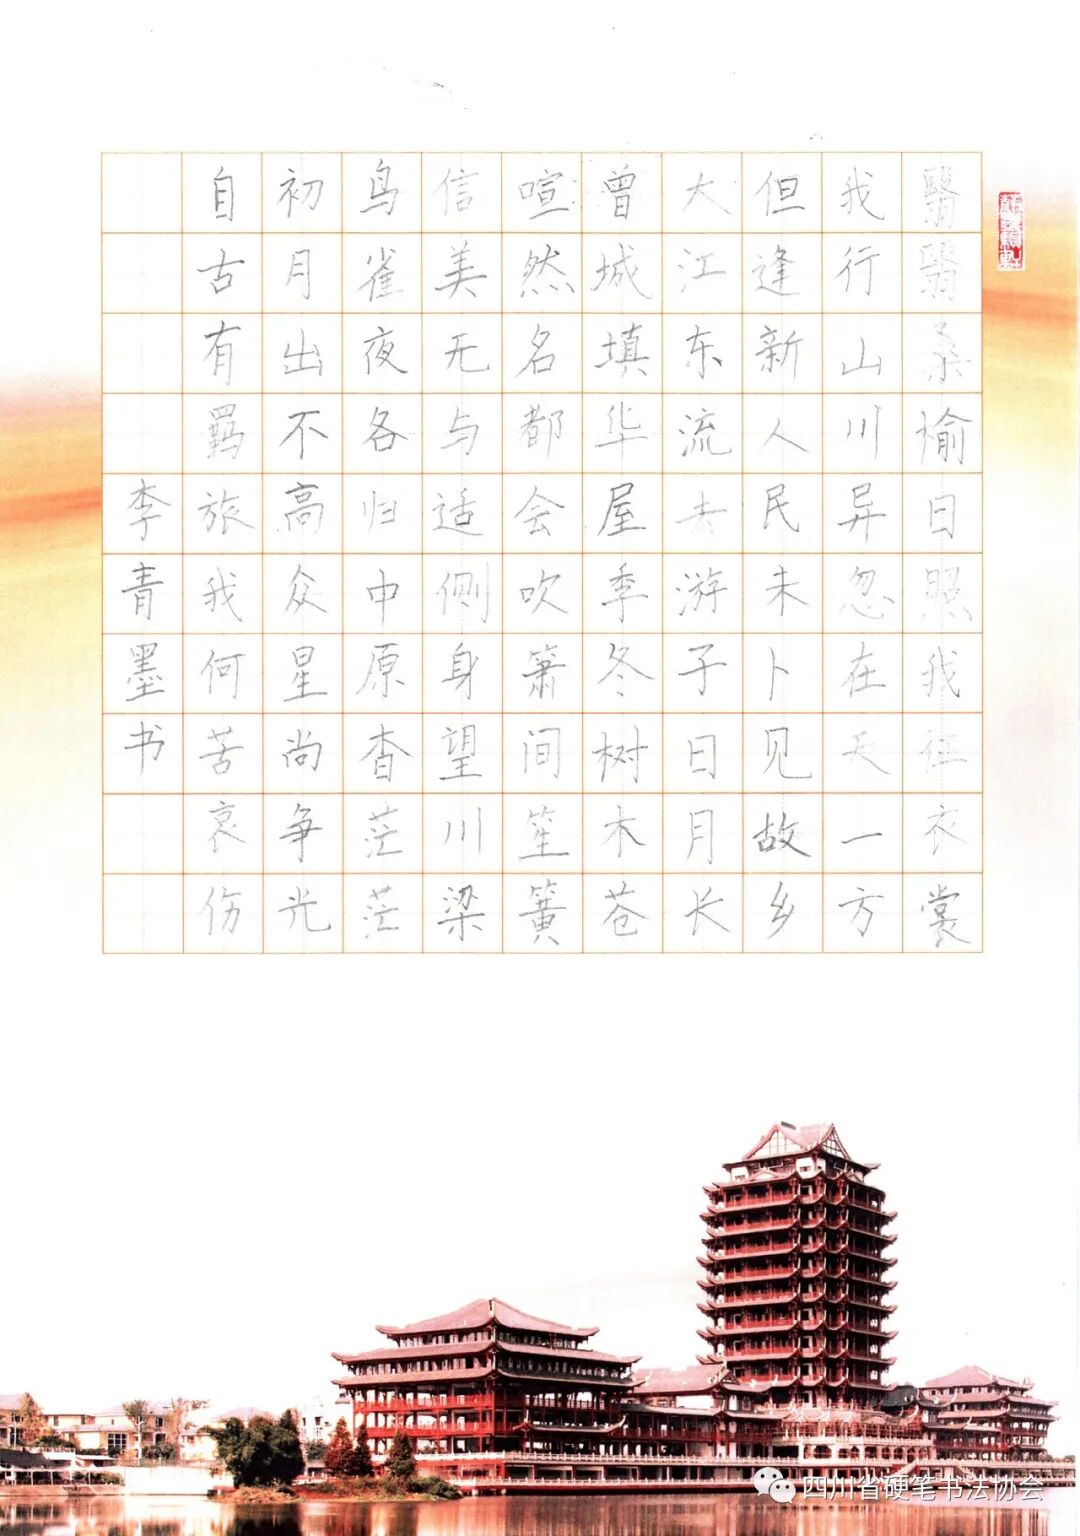 翳翳桑榆日照我征衣裳
我行山川异忽在天一方
但逢新人民未卜见故乡
大江东流去游子日月长
曾城填华屋季冬树木苍
喧然名都会吹箫间笙簧
信美无与适侧身望川梁
鸟雀夜各归中原杳茫茫
初月出不高众星尚争光
自古有羁旅我何苦哀伤
李青墨书
四川省硬笔书法协会